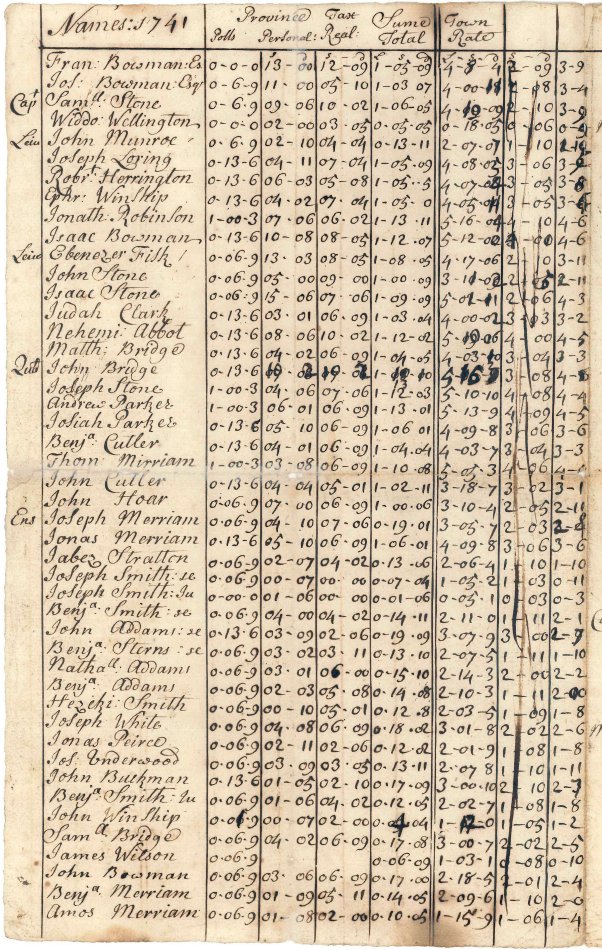 Names: 1741 Polls Province Personal: Tax Real: Sume Total Town Rate
Fran: Bowman: Es 0-0-0 13-00 12-09 1-05-09 3-9
Jos: Bowman: Esqr 0-6-9 11-00 05-10 1-03-07 3-4
Capt Samll Stone 0-6-9 09-06 10-02 1-06-05 3-9
Widdo Wellington 0-0-0 02-00 03-05 0-05-05 0-18-05
Leiu John Munroe 0-6-9 02-10 04-04 0-13-11 2-07-07
Joseph Loring 0-13-6 04-11 07-04 1-05-09
Robrt Herrington 0-13-6 06-03 05-08 1-05-5
Ephr: Winship 0-13-6 04-02 07-04 1-05-0
Jonath: Robinson 1-00-3 07-06 06-02 1-13-11 4-6
Isaac Bowman 0-13-6 10-08 08-05 1-12-07 4-6
Leiu Ebenezer Fisk 0-06-9 13-03 08-05 1-08-05 4-17-06 3-11
John Stone 0-06-9 05-00 09-00 1-00-09
Isaac Stone 0-06-9 15-06 07-06 1-09-09 4-3
Judah Clark 0-13-6 03-01 06-09 1-03-04 3-2
Nehemi: Abbot 0-13-6 08-06 10-02 1-12-02 4-5
Matth: Bridge 0-13-6 04-02 06-09 1-04-05 3-3
John Bridge 0-13-6
Joseph Stone 1-00-3 04-06 07-06 1-12-03 5-10-10 4-08 4-4
Andrew Parker 1-00-3 06-01 06-09 1-13-01 5-13-9 4-09 4-5
Josiah Parker 0-13-6 05-10 06-09 1-06-01 4-09-8 3-06 3-6
Benja: Cutler 0-13-6 04-01 06-09 1-04-04 4-03-7 3-04 3-3
Thom Mirriam 1-00-3 03-08 06-09 1-10-08 5-05-3 4-06 4-4
John Cutler 0-13-6 04-04 05-01 1-02-11 3-18-7 3-02 3-1
John Hoar 0-06-9 07-00 06-09 1-00-06 3-10-4 2-05 2-11
Ens Joseph Merriam 0-06-9 04-10 07-06 0-19-01 3-05-7 2-03
Jonas Merriam 0-13-6 05-10 06-09 1-06-01 4-09-8 3-06 3-6
Jabez Stratton 0-06-9 02-07 04-02 0-13-06 2-06-4 1-10 1-10
Joseph Smith: se 0-06-9 00-07 00-00 0-07-04 1-05-2 1-03 0-11
Joseph Smith: Ju 0-00-0 01-06 00-00 0-01-06 0-05-1 0-03 0-3
Benja: Smith: se 0-06-9 04-00 04-02 0-14-11 2-11-0
John Addams: se 0-13-6 03-09 02-06 0-19-09 3-07-9 3-00 2-7
Benja: Sterns: se 0-06-9 03-02 03-11 0-13-10 2-07-5 1-11 1-10
Nathall Addams 0-06-9 03-01 06-00 0-15-10 2-14-3 2-2
Benja: Addams 0-06-9 02-03 05-08 0-14-08 2-10-3 1-11
Hezeki: Smith 0-06-9 00-10 05-01 0-12-8 2-03-5 1-09 1-8
Joseph White 0-06-9 04-08 06-09 0-18-02 3-01-8 2-02 2-6
Jonas Peirce 0-06-9 02-11 02-06 0-12-02 2-01-9 1-08 1-8
Jos: Underwood 0-06-9 03-09 03-05 0-13-11 2-07-8 1-10 1-11
John Buckman 0-13-6 01-05 02-10 0-17-09 3-00-10
Benja: Smith: Ju 0-06-9 01-06 04-02 0-12-05 2-02-7 1-08 1-8
John Winship 00-07 02-00 1-05 1-2
Samll Bridge 0-06-9 04-02 06-09 0-17-08 3-00-7 2-02 2-5
James Wilson 0-06-9 0-06-09 1-03-1 0-08 0-10
John Bowman 0-06-9 03-06 06-09 0-17-00 2-18-5 2-01 2-4
Benja: Merriam 0-06-9 01-09 05-11 0-14-05 2-09-6 1-10 2-0
Amos Merriam 0-06-9 01-08 02-00 0-10-05 1-15-9 1-06 1-4